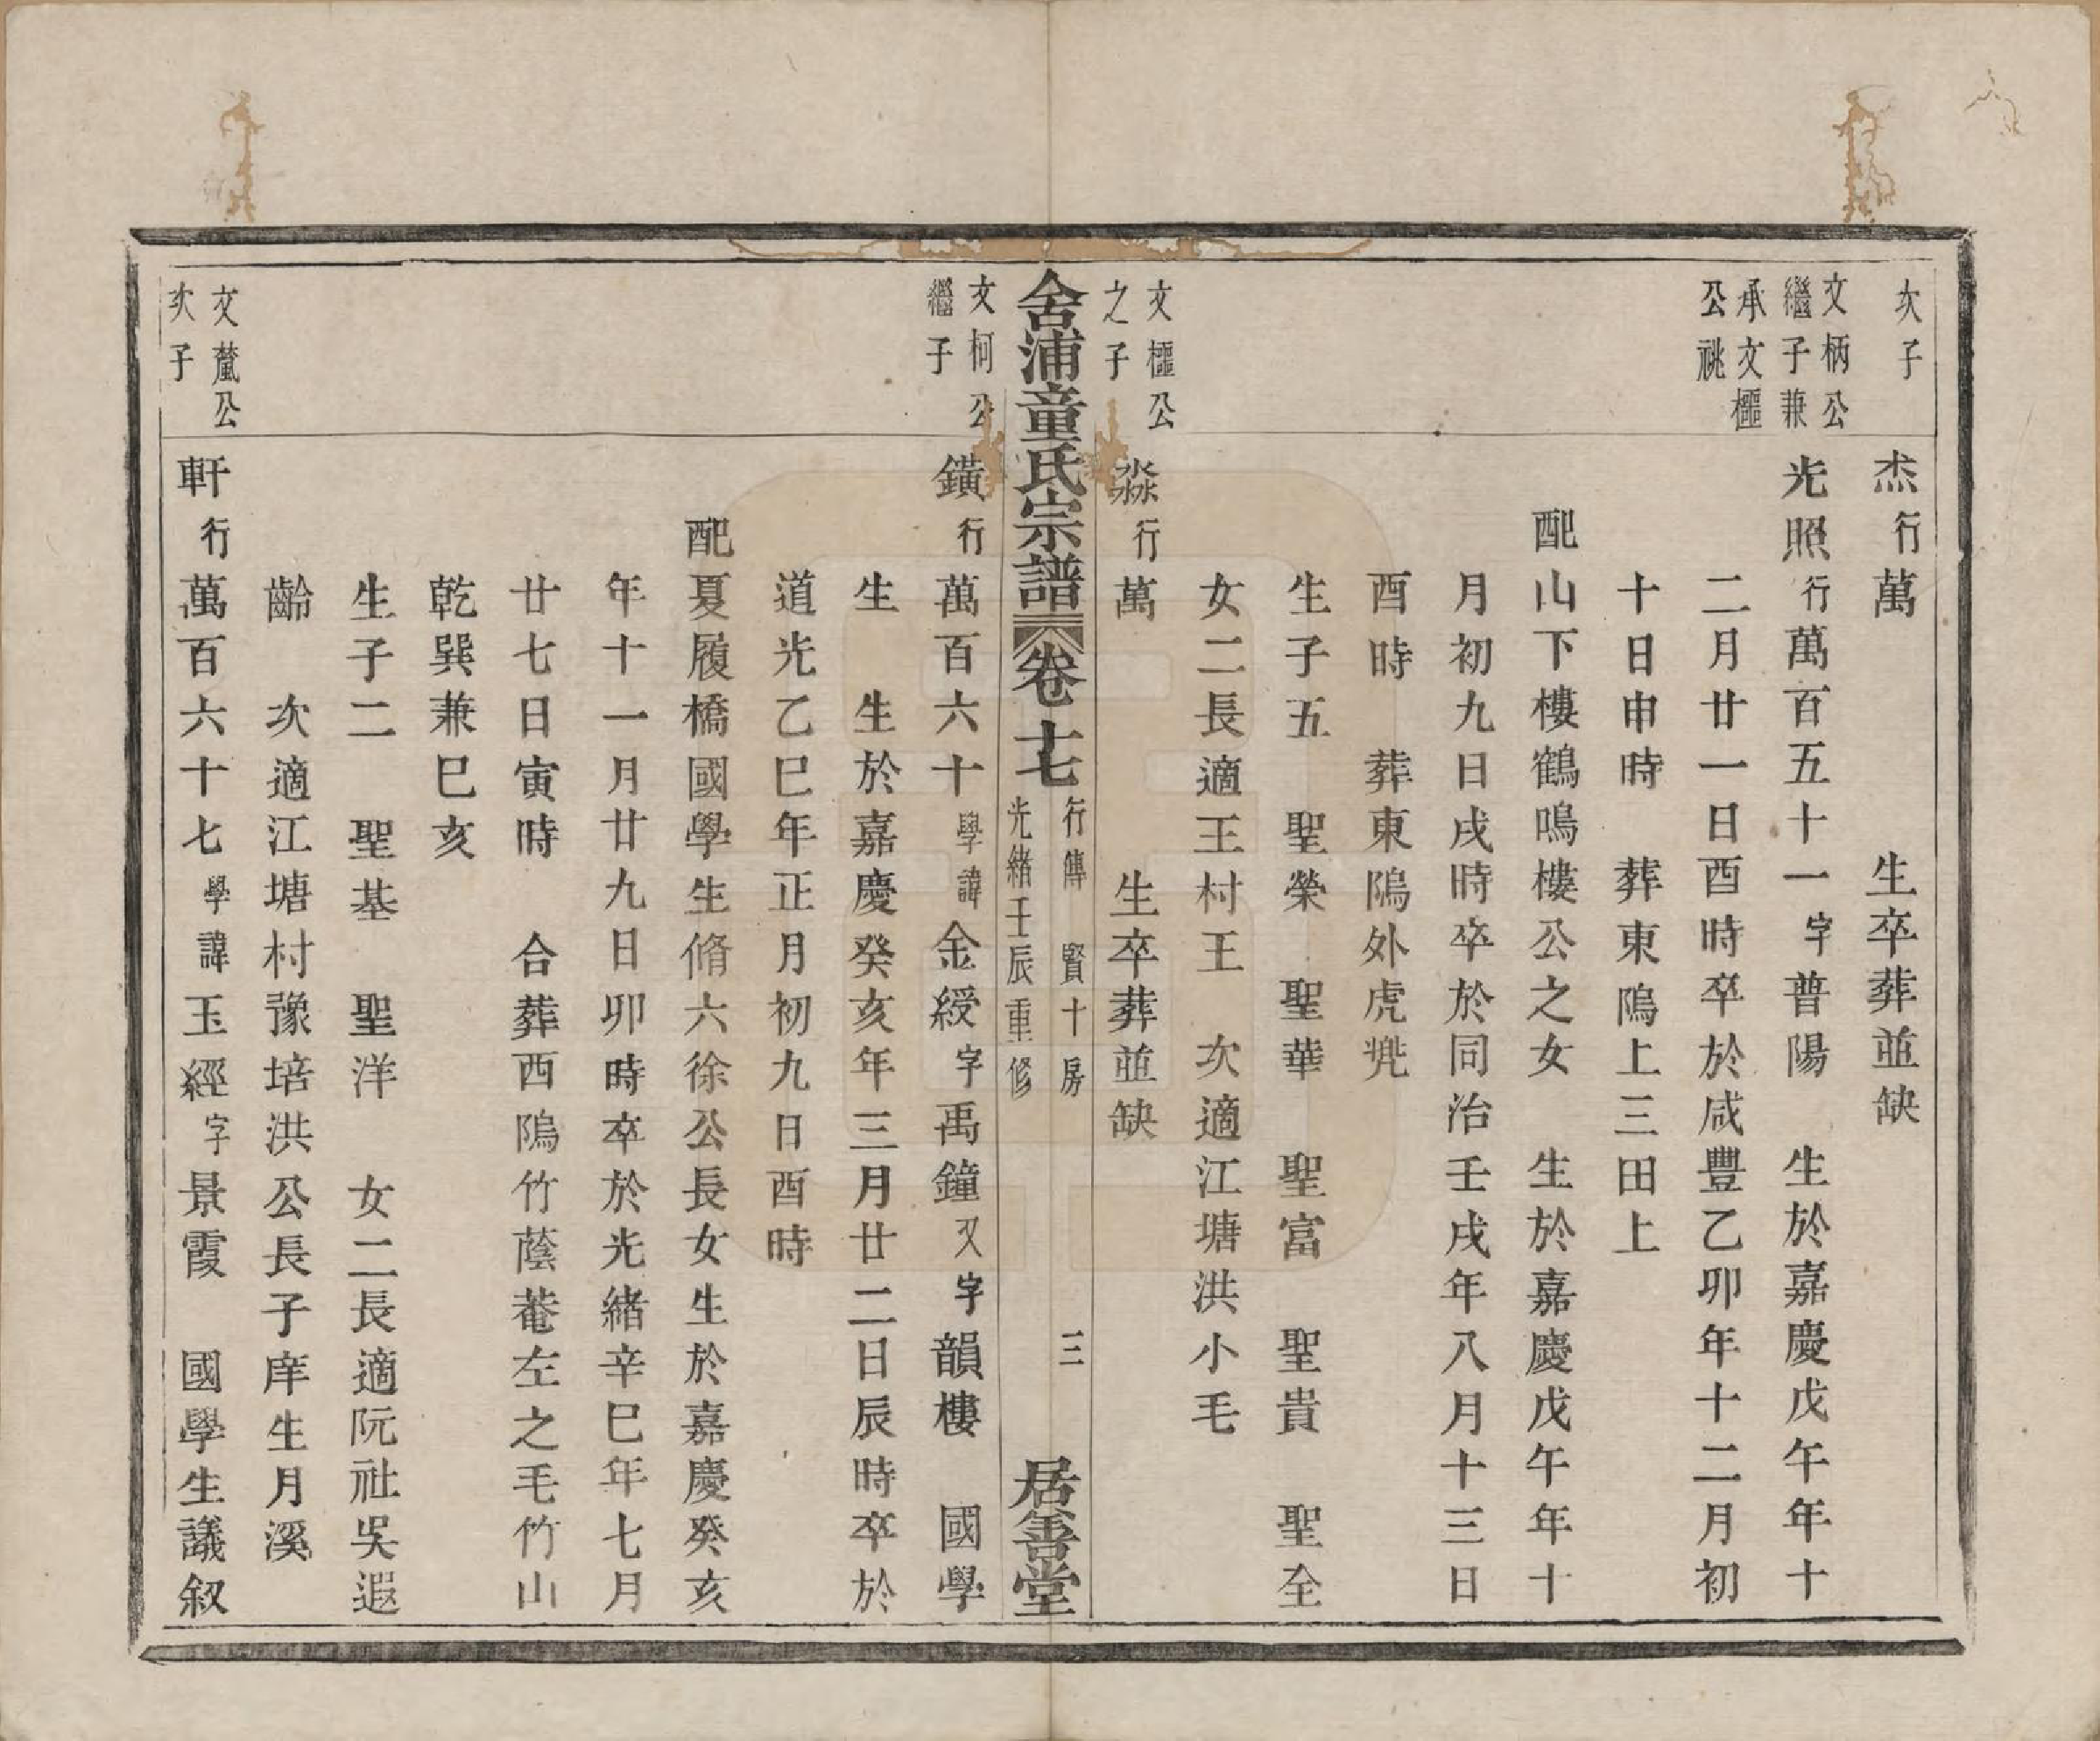 次子
杰行萬　生卒葬並缺
文柄公
繼子兼
承文櫃
公祧
光照行萬百五十一字普陽　生於嘉慶戊午年十
二月廿一日酉時卒於咸豐乙卯年十二月初
十日申時　葬東隖上三田上
配山下樓鶴鳴樓公之女　生於嘉慶戊午年十
月初九日戌時卒於同治壬戌年八月十三日
酉時　葬東隖外虎兠
生子五　聖榮　聖華　聖富　聖貴　聖全
女二長適王村王　次適江塘洪小毛
文櫃公
之子
淼行萬　生卒葬並缺
舍浦童氏宗譜卷十七
行傳　賢十房　三
光緒壬辰重修
居善堂
文柯公
繼子
鐄行萬百六十學諱金綬字禹鐘又字韻樓　國學
生　生於嘉慶癸亥年三月廿二日辰時卒於
道光乙巳年正月初九日酉時
配夏履橋國學生脩六徐公長女生於嘉慶癸亥
年十一月廿九日卯時卒於光緒辛巳年七月
廿七日寅時　合葬西隖竹蔭菴左之毛竹山
乾巽兼巳亥
生子二　聖基　聖洋　女二長適阮社吳遐
齡　次適江塘村豫培洪公長子庠生月溪
公
次子
軒行萬百六十七學諱玉經字景霞　國學生議叙